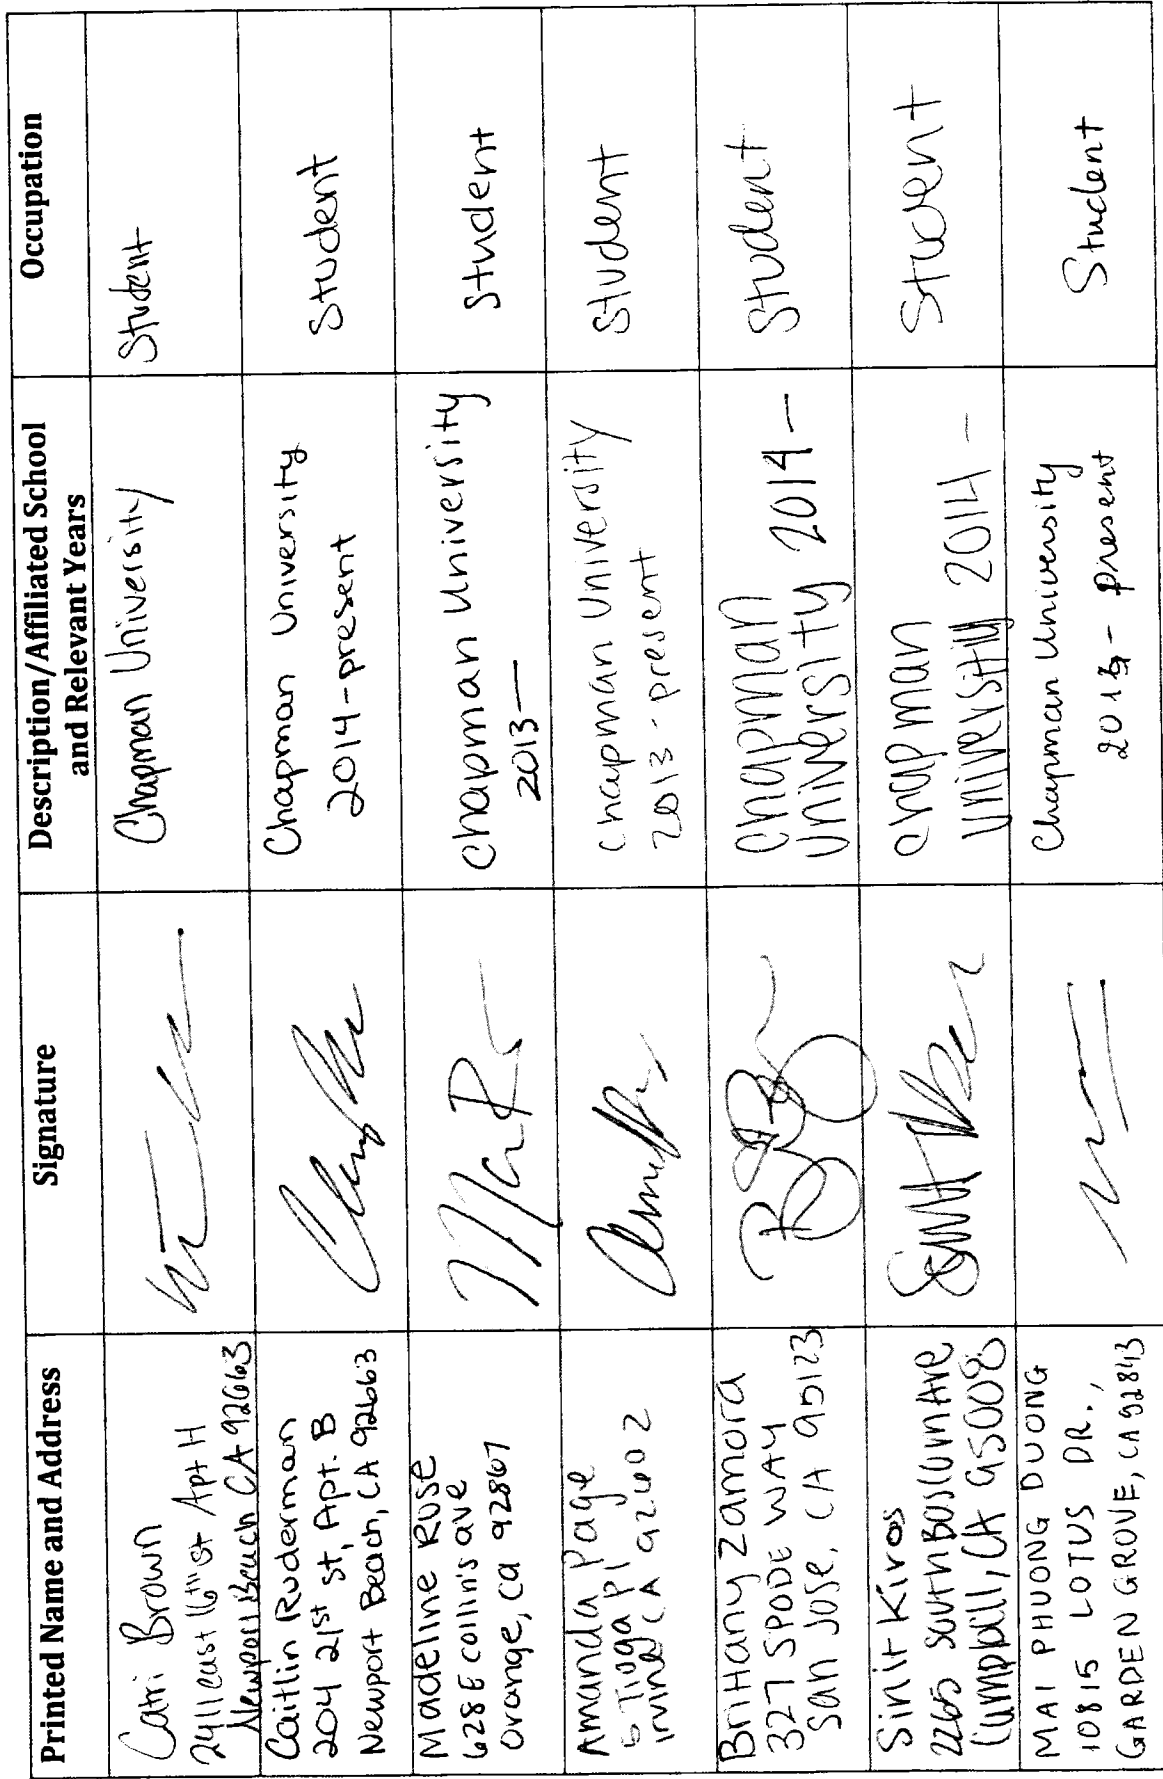 Printed Name and Address
Signature
Description/Affiliated School
and Relevant Years
Occupation
Catri Brown
2411 east 16th st Apt H
Newport Beach CA 92663
Chapman University
Student
Caitlin Ruderman
204 21st st, Apt. B
Newport Beach, CA 92663
Chapman University
2014-present
Student
Madeline Rose
628 E collin's ave
Orange, ca 92867
Chapman University
2013—
Student
Amanda Page
5 Tioga Pl
Irvine CA 92602
Chapman University
2013-present
Student
Brittany Zamora
327 SPODE WAY
San Jose, CA 95123
Chapman
University 2014-
Student
Sinit Kiros
2265 South Bascum Ave
Campbell, CA 95008
Chapman
University 2014-
Student
MAI PHUONG DUONG
10815 LOTUS DR.,
GARDEN GROVE, CA 92843
Chapman University
- present
Student